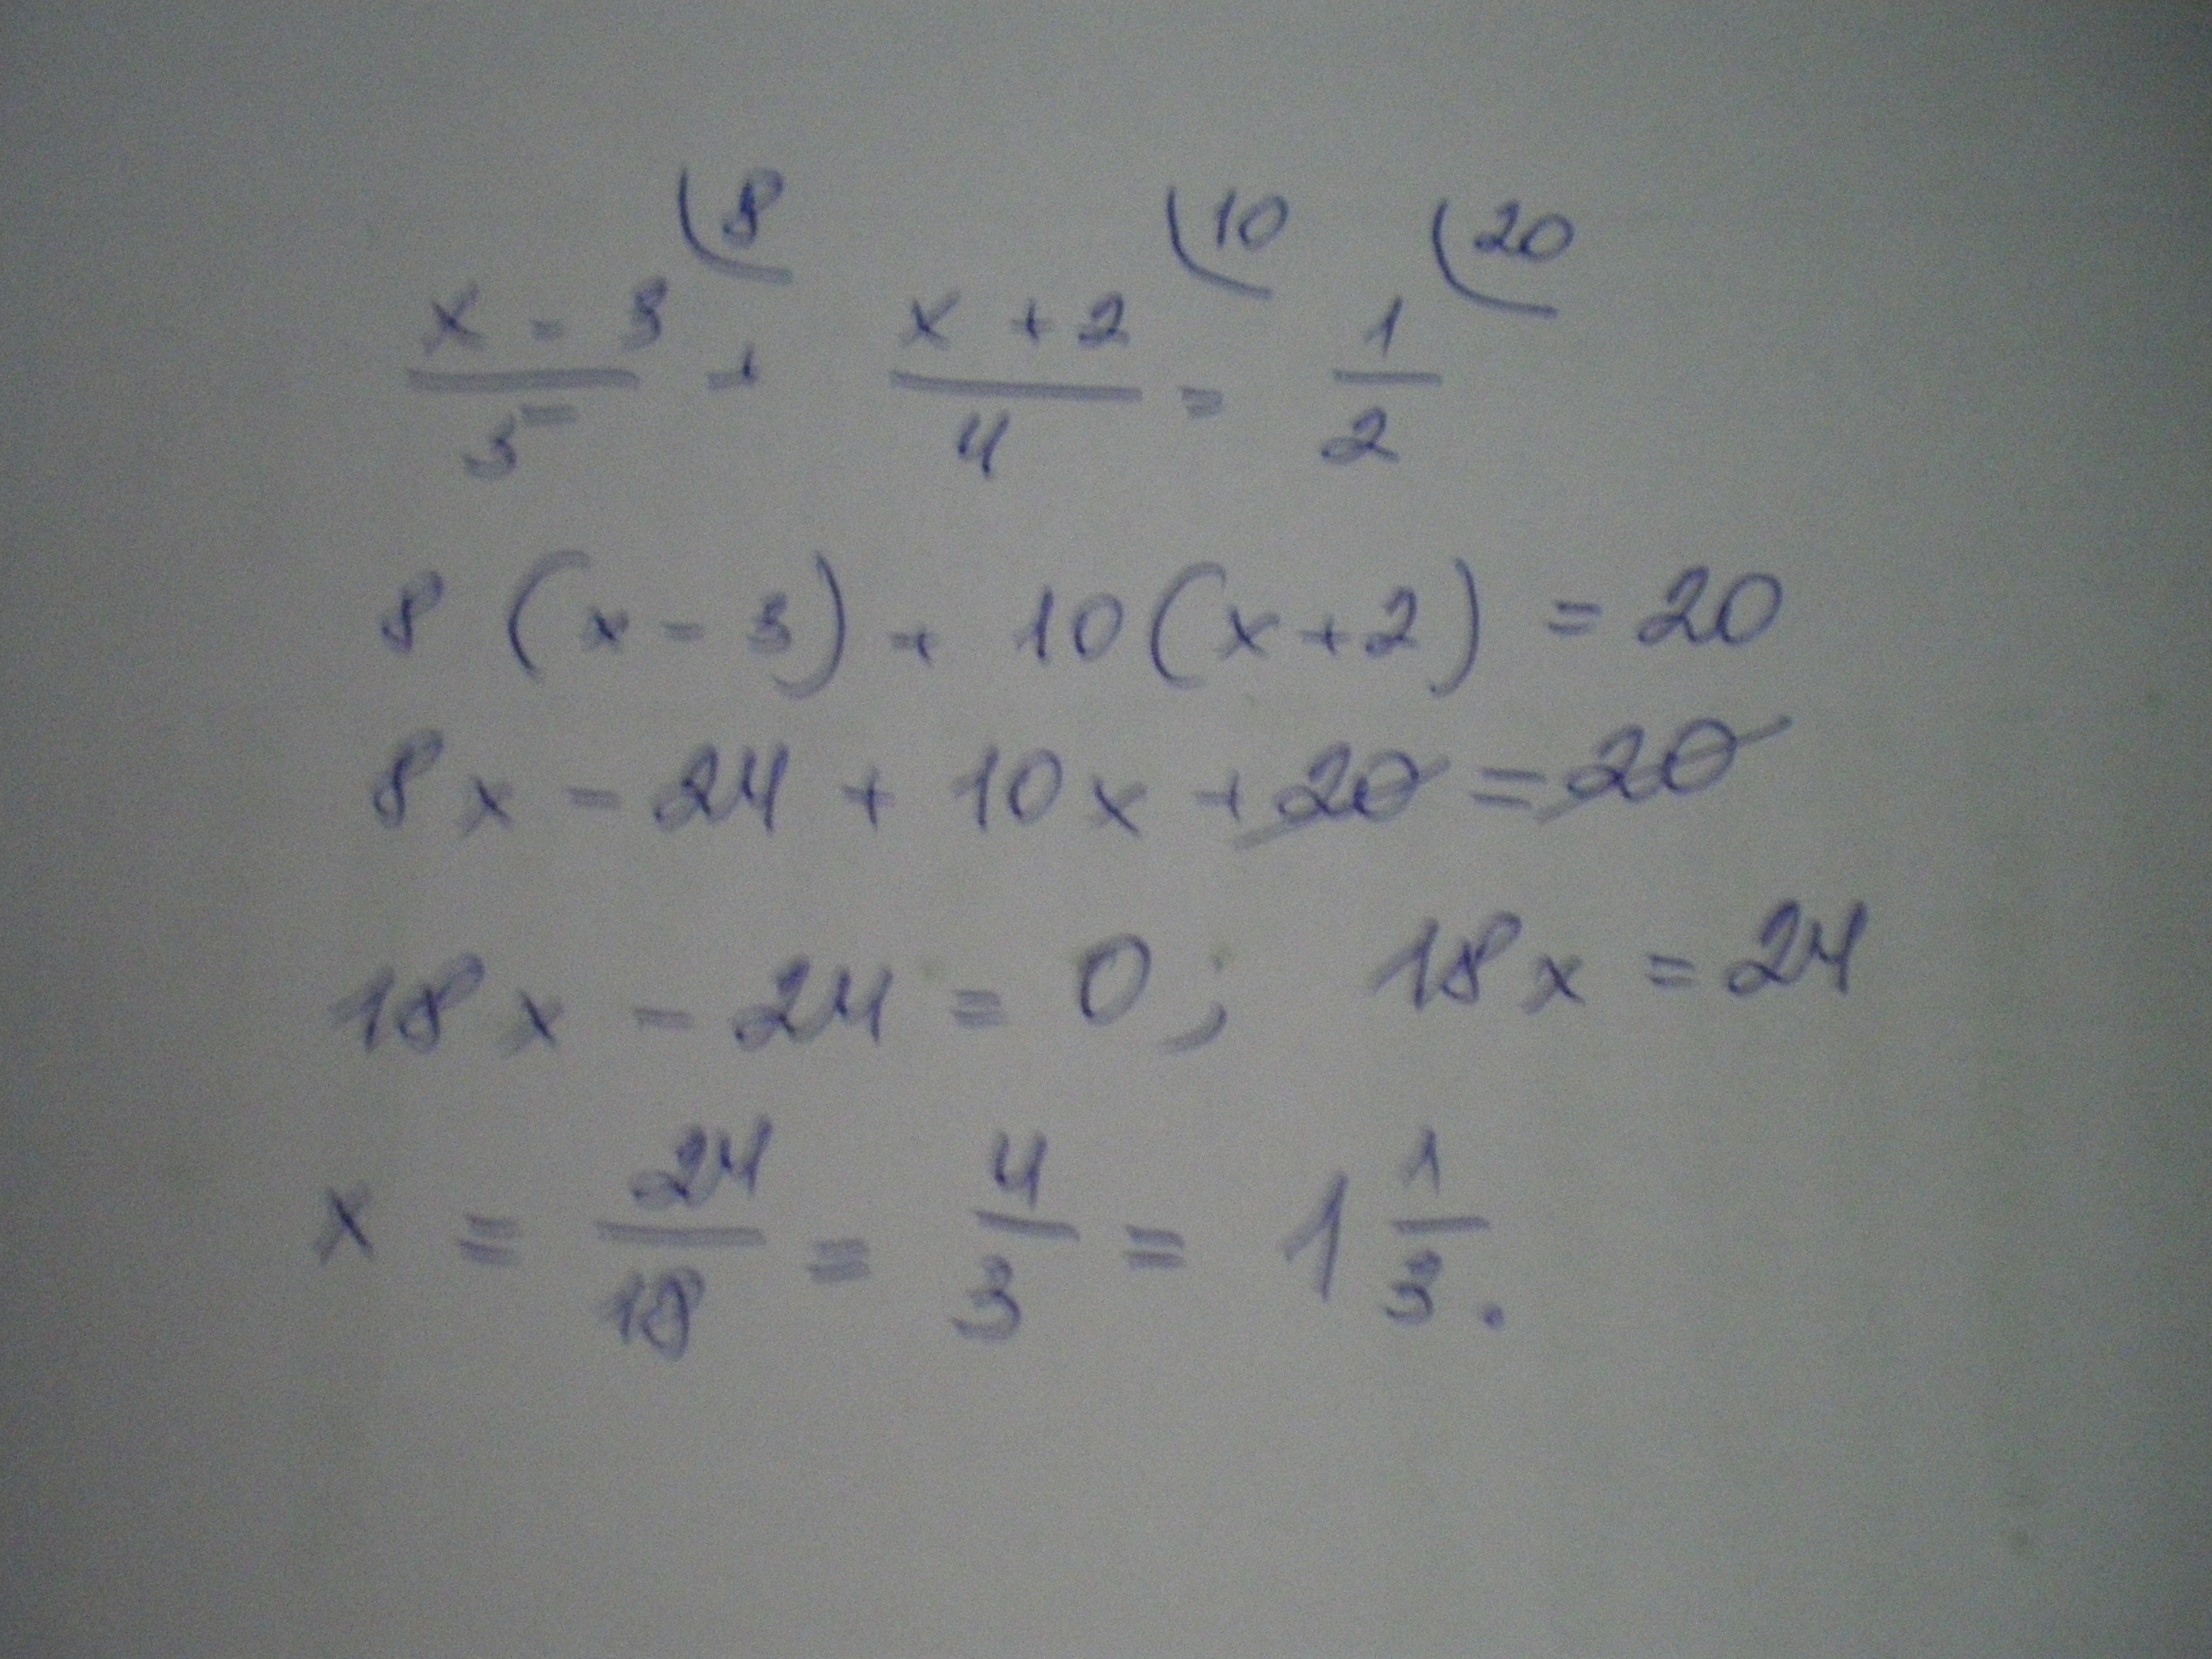 8 10 20
x - 3 / 5 + x + 2 / 4 = 1 / 2
8 (x - 3) + 10 (x + 2) = 20
8x - 24 + 10x + 20 = 20
18x - 24 = 0; 18x = 24
x = 24 / 18 = 4 / 3 = 1 1 / 3.